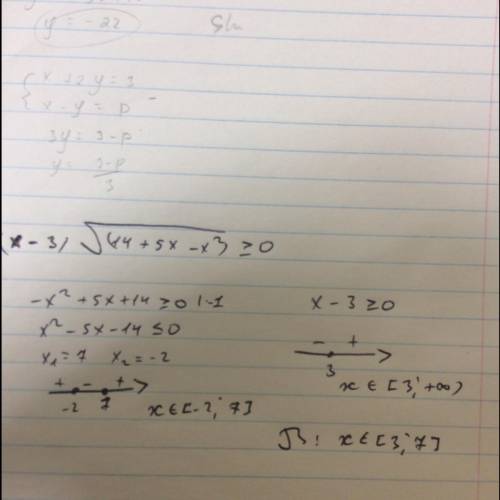 y = -22
x + 2y = 3
x - y = p
3y = 3-p
y = 3-p / 3
(x - 3) √(14 + 5x - x²) ≥ 0
-x² + 5x + 14 ≥ 0 |·-1
x² - 5x - 14 ≤ 0
x₁ = 7 x₂ = -2
+ - +
-2 7
x ∈ [-2; 7]
x - 3 ≥ 0
- +
3
x ∈ [3; +∞)
: x ∈ [3; 7]